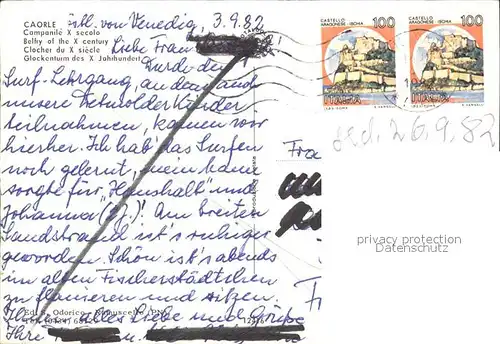 CAORLE östl. von Venedig, 3.9.82
Campanile X secolo
Belfry of the X century
Clocher du X siècle
Glockenturm des X Jahrhundert
Liebe Frau
Durch den
Surf-Lehrgang, an dem auch
unsere Detmolder Kinder
teilnahmen, kamen wir
hierher. Ich hab' das Surfen
noch gelernt, mein Mann
sorgte für "Haushalt" und
Johanna (2 J.)! Am breiten
Sandstrand ist's ruhiger
geworden. Schön ist's abends
im alten Fischerstädtchen
zu flanieren und sitzen.
Ihnen alles Liebe und Grüße
Ihre
CASTELLO
ARAGONESE - ISCHIA
100
ITALIA
CASTELLO
ARAGONESE - ISCHIA
100
ITALIA
26.9.82
Fra
F
privacy protection
Datenschutz